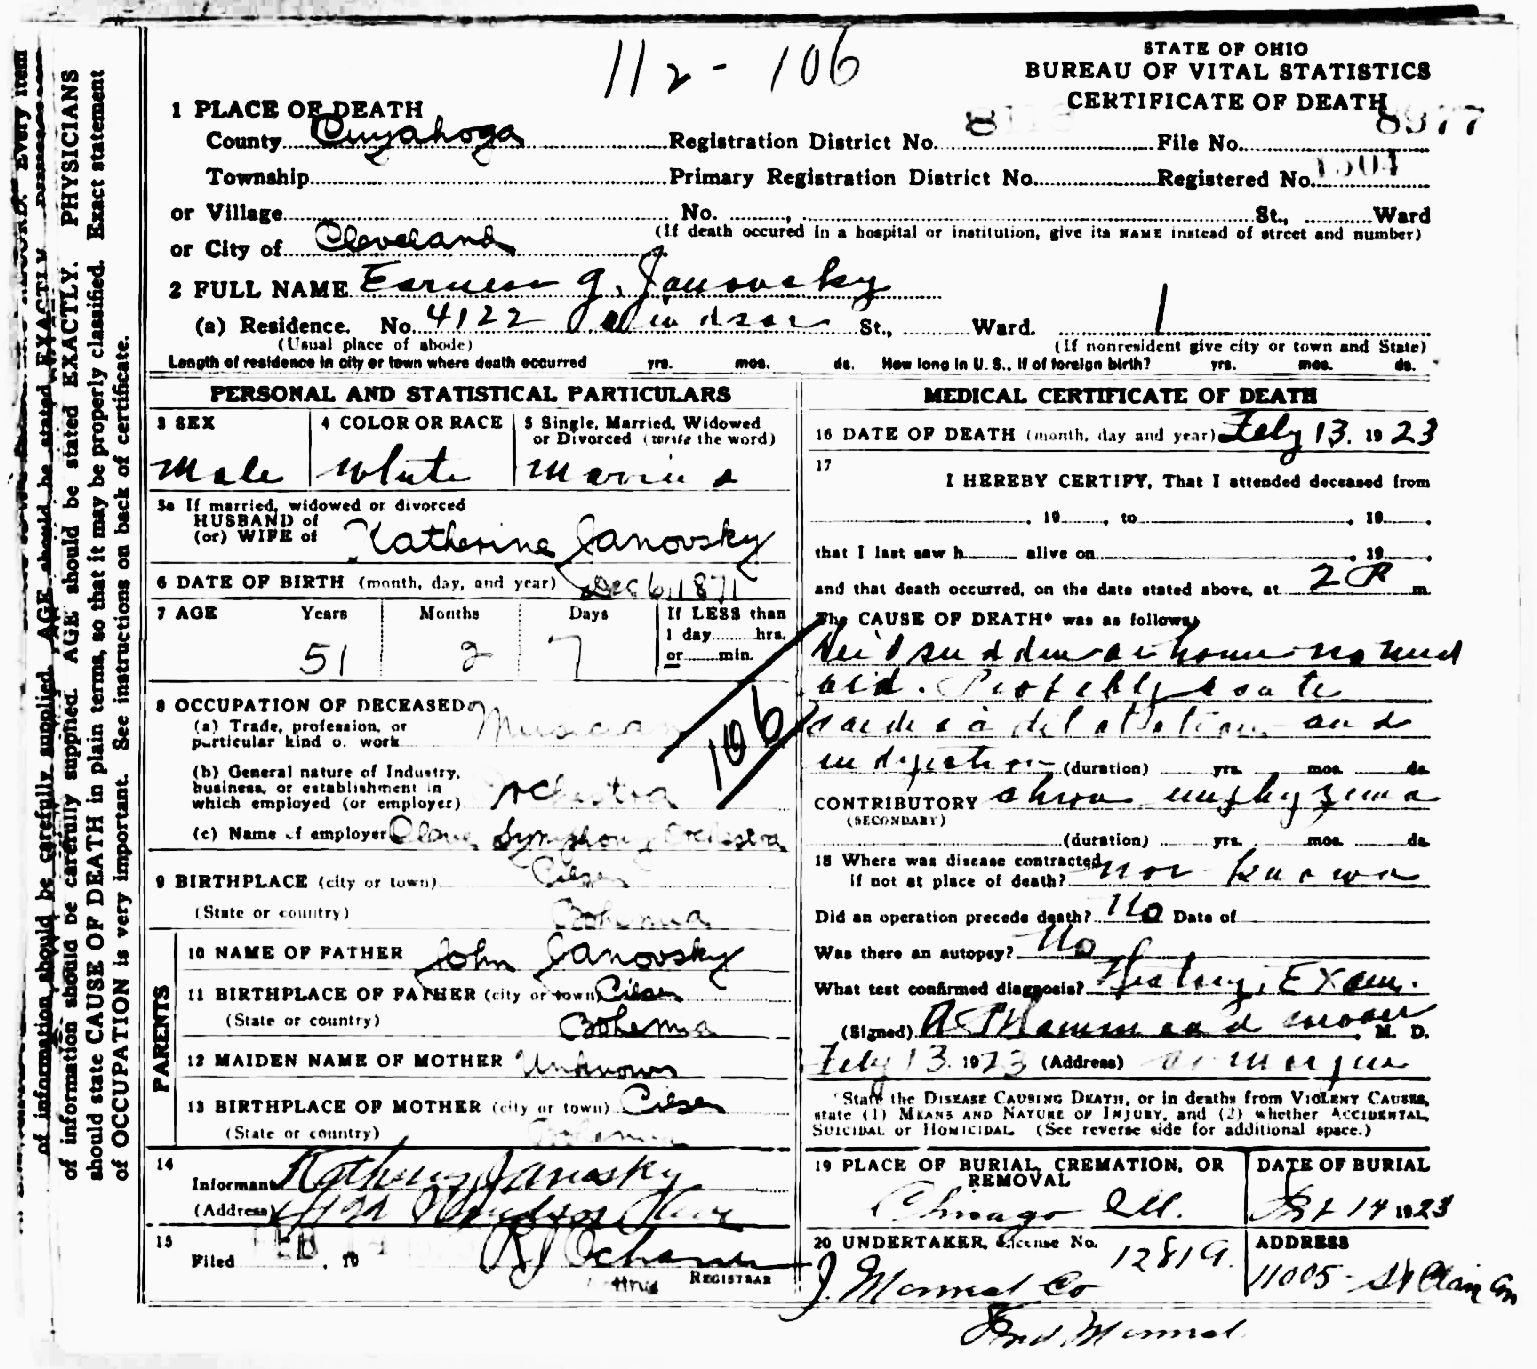 112-106
STATE OF OHIO
BUREAU OF VITAL STATISTICS
CERTIFICATE OF DEATH
1 PLACE OF DEATH
County Cuyahoga Registration District No. File No. 8977
Township Primary Registration District No. Registered No. 1504
or Village No. , St., Ward
or City of Cleveland (If death occured in a hospital or institution, give its NAME instead of street and number)
2 FULL NAME G. Janovsky
(a) Residence. No. 4122 Windsor St., Ward.
(Usual place of abode) (If nonresident give city or town and State)
Length of residence in city or town where death occurred yrs. mos. ds. How long in U. S., if of foreign birth? yrs. mos. ds.
PERSONAL AND STATISTICAL PARTICULARS
3 SEX 4 COLOR OR RACE 5 Single, Married, Widowed
or Divorced (write the word)
Male White Married
5a If married, widowed or divorced
HUSBAND of
(or) WIFE of Katherine Janovsky
6 DATE OF BIRTH (month, day, and year) Dec 6, 1871
7 AGE Years Months Days If LESS than
1 day hrs.
or min.
51 2 7
8 OCCUPATION OF DECEASED
(a) Trade, profession, or
particular kind of work Musician
(b) General nature of Industry,
business, or establishment in
which employed (or employer) Orchestra
(c) Name of employer Cleve. Symphony Orchestra
9 BIRTHPLACE (city or town) Pilsen
(State or country) Bohemia
PARENTS
10 NAME OF FATHER John Janovsky
11 BIRTHPLACE OF FATHER (city or town) Pilsen
(State or country) Bohemia
12 MAIDEN NAME OF MOTHER Unknown
13 BIRTHPLACE OF MOTHER (city or town) Pilsen
(State or country) Bohemia
14
Informant Katherine Janovsky
(Address) 4122 Windsor Ave
15
Filed FEB 14, 19
REGISTRAR
106
MEDICAL CERTIFICATE OF DEATH
16 DATE OF DEATH (month, day and year) Feby 13. 1923
17
I HEREBY CERTIFY, That I attended deceased from
, 19 , to , 19 .
that I last saw h alive on , 19 ,
and that death occurred, on the date stated above, at 2 P m.
The CAUSE OF DEATH* was as follows:
Died sudden at home no med
aid. Probably acute
cardiac dilatation and
indigestion (duration) yrs. mos. ds.
CONTRIBUTORY chron emphyzema
(SECONDARY)
(duration) yrs. mos. ds.
18 Where was disease contracted
if not at place of death? not known
Did an operation precede death? No Date of
Was there an autopsy? No
What test confirmed diagnosis? History, Exam.
(Signed) M. D.
Feby 13. 1923 (Address) at morgue
*State the DISEASE CAUSING DEATH, or in deaths from VIOLENT CAUSES,
state (1) MEANS AND NATURE OF INJURY, and (2) whether ACCIDENTAL,
SUICIDAL or HOMICIDAL. (See reverse side for additional space.)
19 PLACE OF BURIAL, CREMATION, OR
REMOVAL
Chicago Ill.
DATE OF BURIAL
14 1923
20 UNDERTAKER, License No. 1281A.
ADDRESS
11005 - St Clair Av
of information should be carefully supplied. AGE should be stated EXACTLY. PHYSICIANS
should state CAUSE OF DEATH in plain terms, so that it may be properly classified. Exact statement
of OCCUPATION is very important. See instructions on back of certificate.